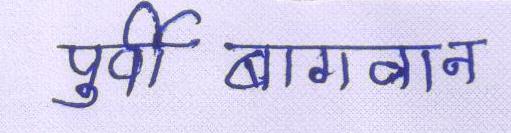 पुर्वी बागबान